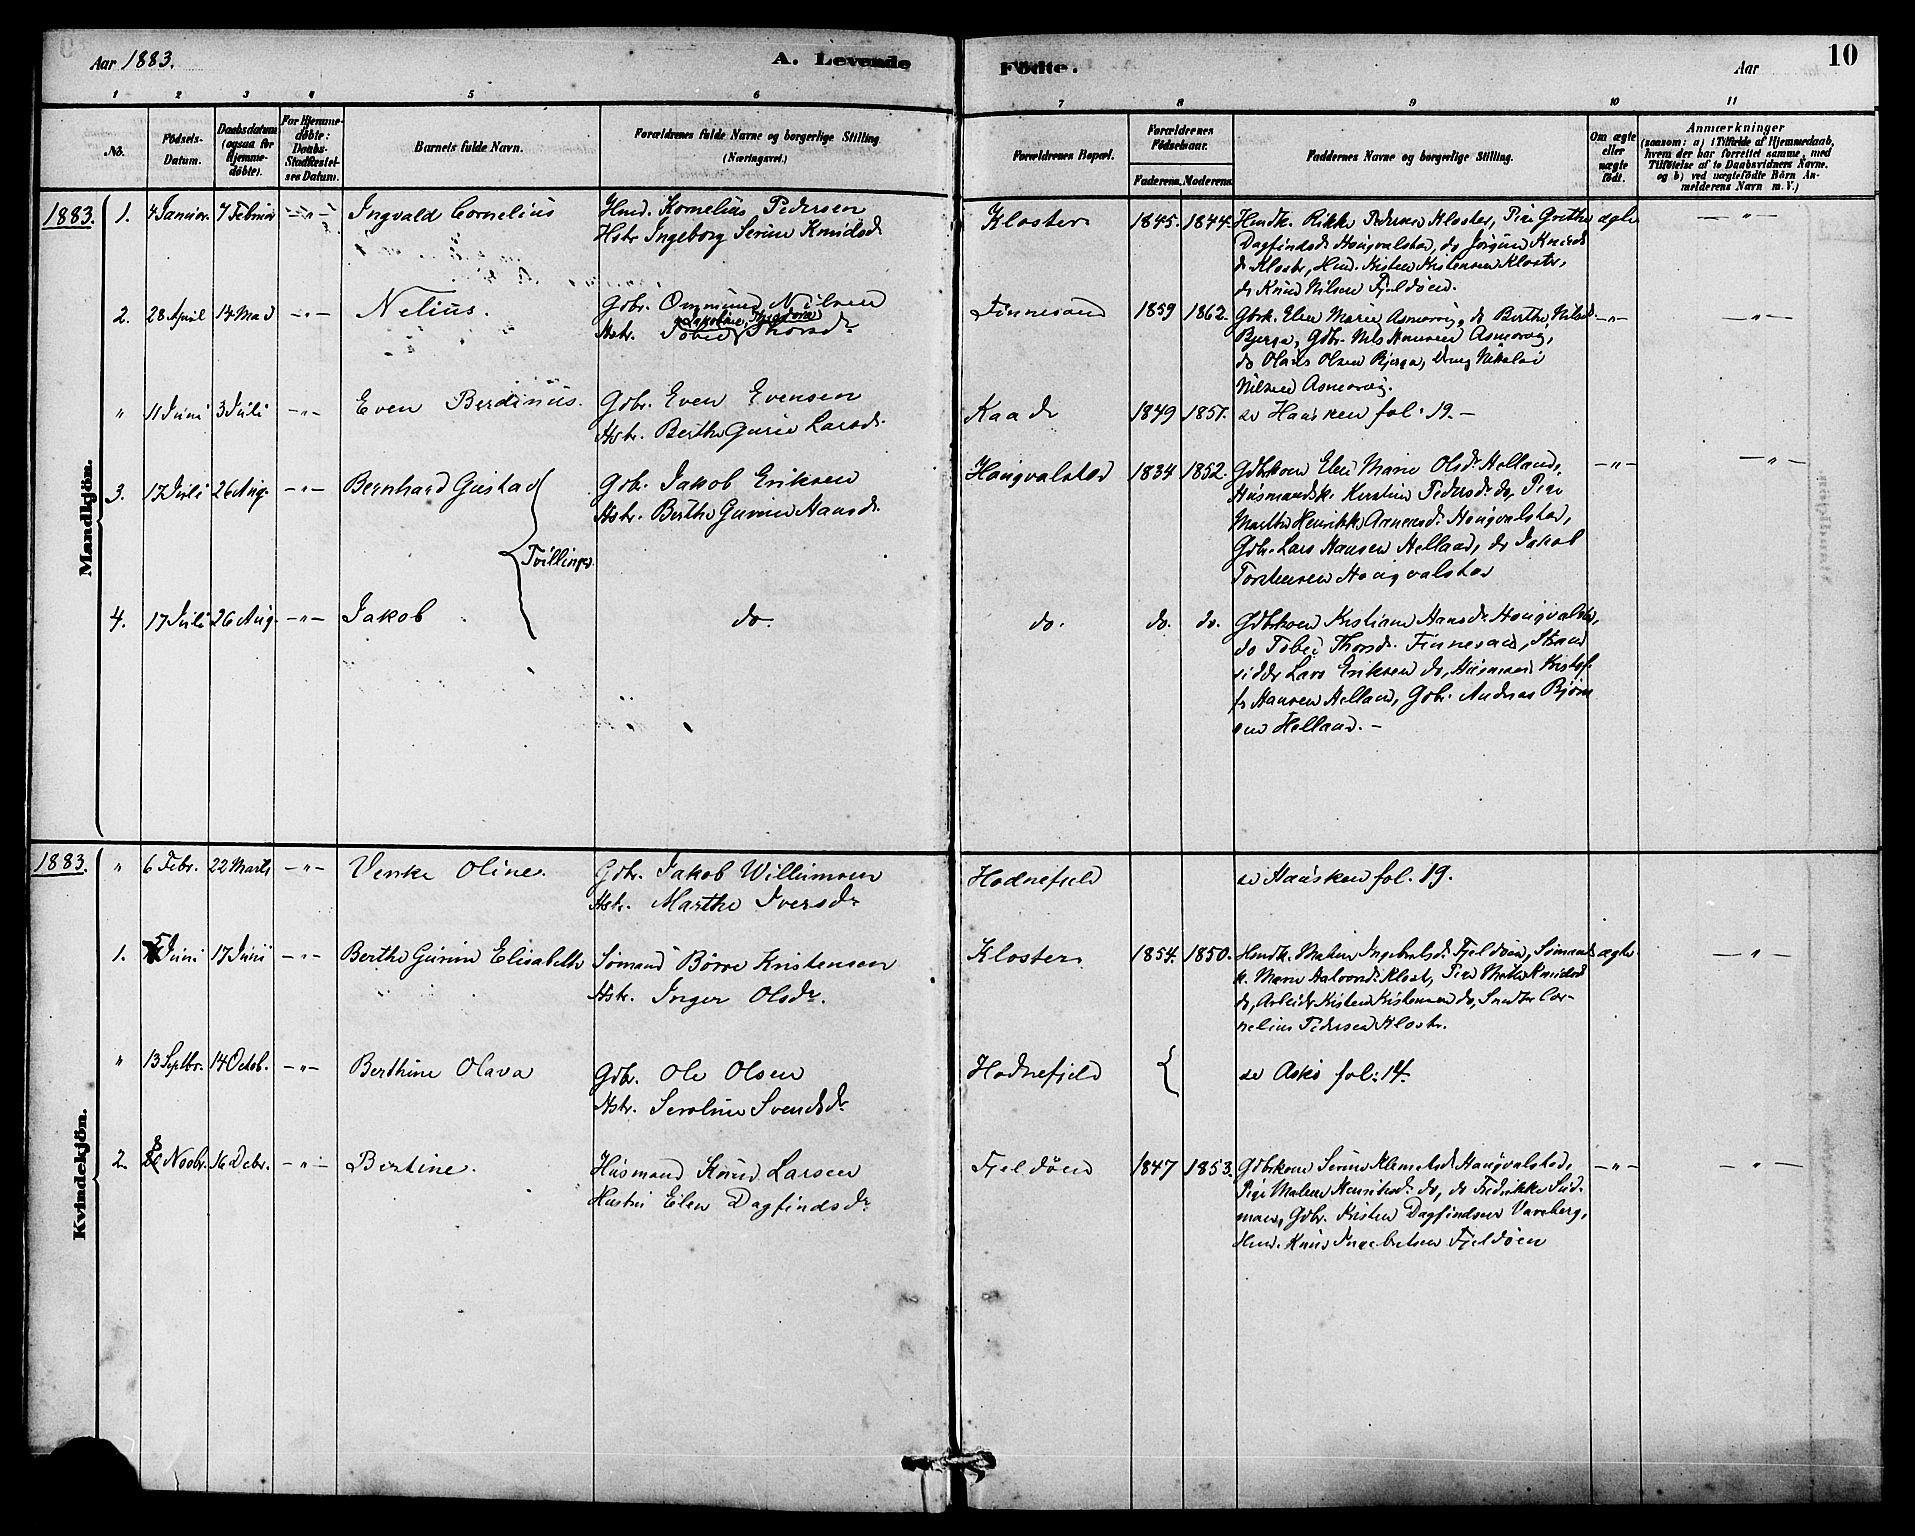 Aar 1883.
A. Levende
Födte.
Aar
10
1 2 3 4 5 6 7 8 9 10 11
No.
Födsels-
Datum.
Daabsdatum
(ogsaa for
Hjemme-
døbte).
For Hjemme-
døbte:
Daabs-
Stadfæstel-
ses Datum.
Barnets fulde Navn.
Forældrenes fulde Navne og borgerlige Stilling
(Næringsvei.)
Forældrenes Bopæl.
Forældrenes
Födselsaar.
Faderens. Moderens.
Faddernes Navne og borgerlige Stilling.
Om ægte
eller
uægte
födt.
Anmærkninger
(saasom: a) i Tilfælde af Hjemmedaab,
hvem der har forrettet samme, med
Tilföielse af to Daabsvidners Navne.
og b) ved uægtefödte Börn An-
melderens Navn m. V.)
Mandkjön.
1883. 1. 4 Januar 7 Februar -"- Ingvald Cornelius
Hmd. Kornelius Pedersen
Hstr Ingeborg Serine Knudsd.
Kloster 1845. 1844.
Hmdk. Rikke Pedersen Kloster, Pige Grethe
Dagfindsd. Haugvalstad, do Jörgine Knudsd.
do Kloster, Hmd. Kristen Kristensen Kloster,
do Knud Nilsen Fjeldöen.
ægte -"-
2. 28 April 14 Mai -"- Nelius.
Gdbr. Ommund Nilsen
Jakobine Theodora
Hstr. Tobea Thorsdr
Finnesand 1859 1862.
Gbrk. Elen Marie Asmervig, do Berthe Nilsd.
Bjerga, Gdbr. Nils Hansen Asmervig,
do Olaus Olsen Bjerga, Dreng Nikolai
Nilsen Asmervig.
-"- -"-
" 11 Juni 3 Juli -"- Even Berdinius.
Gdbr. Even Evensen
Hstr. Berthe Gurie Larsdr.
Kaade 1849 1857. se Hausken fol. 19. -
3. 17 Juli 26 Aug. -"- Bernhard Gustav
Tvillinger.
Gdbr. Jakob Eriksen
Hstr. Berthe Gurine Hansdr.
Haugvalstad 1834 1852.
Gdbrkone Elen Marie Olsdr Helland,
Husmandsk. Kerstine Pedersdr do, Pige
Marthe Henrikke Arnesdr. Haugvalstad,
Gdbr. Lars Hansen Helland, do Jakob
Torstensen Haugvalstad
-"- -"-
4. 17 Juli 26 Aug. -"- Jakob do. do. do. do.
Gdbrkone Kristiane Hansdr Haugvalstad,
do Tobea Thorsdr. Finnesand, Strand
sidder Lars Eriksen do, Husmand Kristof-
fer Hansen Helland, Gdbr. Andreas Björn
sen Helland. -
Kvindekjön.
1883. " 6 Febr. 22 Marts -"- Venke Oline.
Gdbr. Jakob Willumsen
Hstr. Marthe Iversdr
Hodnefjeld
se Hausken fol. 19.
1. 5 Juni 17 Juni -"- Berthe Gurine Elisabeth
Sömand Börre Kristensen
Hstr. Inger Olsdr.
Kloster 1854. 1850.
Hmdk. Malene Ingebretsd. Fjeldöen, Sömands
k. Maren Halvorsdr. Klost., Pige Mette Knudsd.
do, Arbeider Kristen Kristensen do, Snedker Cor-
nelius Pedersen Kloster.
ægte -"-
" 13 Septbr. 14 Octob. -"- Berthine Olava
Gdbr. Ole Olsen
Hstr. Seroline Svendsdr
Hodnefjeld
se Askö fol: 14.
2. 8 Novbr. 16 Debr. -"- Bertine.
Husmand Knud Larsen
Hustru Elen Dagfindsdr
Fjeldöen 1847 1853.
Gdbrkone Serine Klemetsd. Haugvalstad,
Pige Malene Henriksdr. do, do Fredrikke Sud-
man, Gdbr. Kristen Dagfindsen Varaberg,
Hmd. Knud Ingebretsen Fjeldöen
-"- -"-